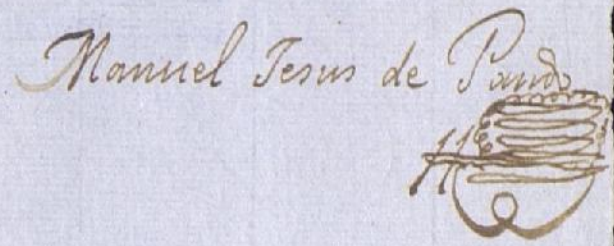 Manuel Jesus de Pando